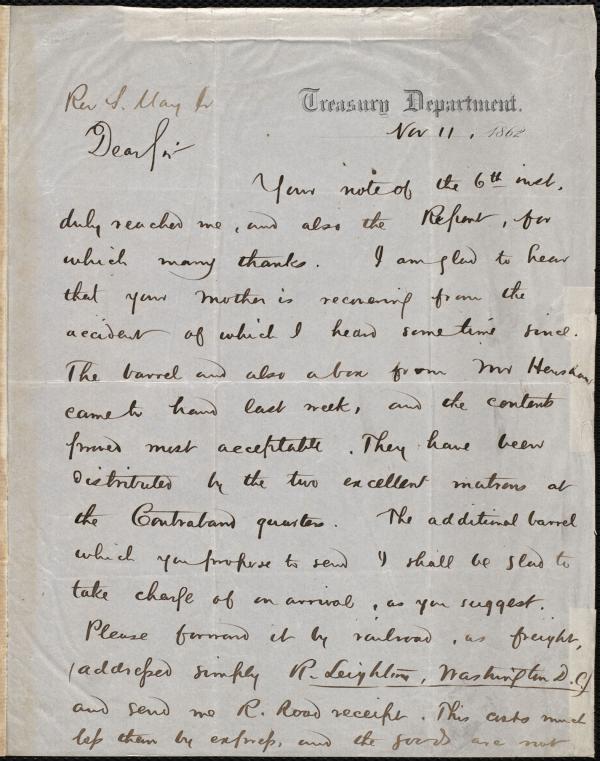 Rev S. May Jr
Treasury Department.
Nov 11, 1862
Dear Sir
Your note of the 6th inst.
duly reached me, and also the Report, for
which many thanks. I am glad to hear
that your mother is recovering from the
accident of which I heard some time since.
The barrel and also a box from Mr Henshaw
came to hand last week, and the contents
proved most acceptable. They have been
distributed by the two excellent matrons at
the Contraband quarters. The additional barrel
which you propose to send I shall be glad to
take charge of on arrival, as you suggest.
Please forward it by railroad, as freight,
(addressed simply R. Leighton, Washington D.C)
and send me R. Road receipt. This costs much
less than by express, and the goods are not